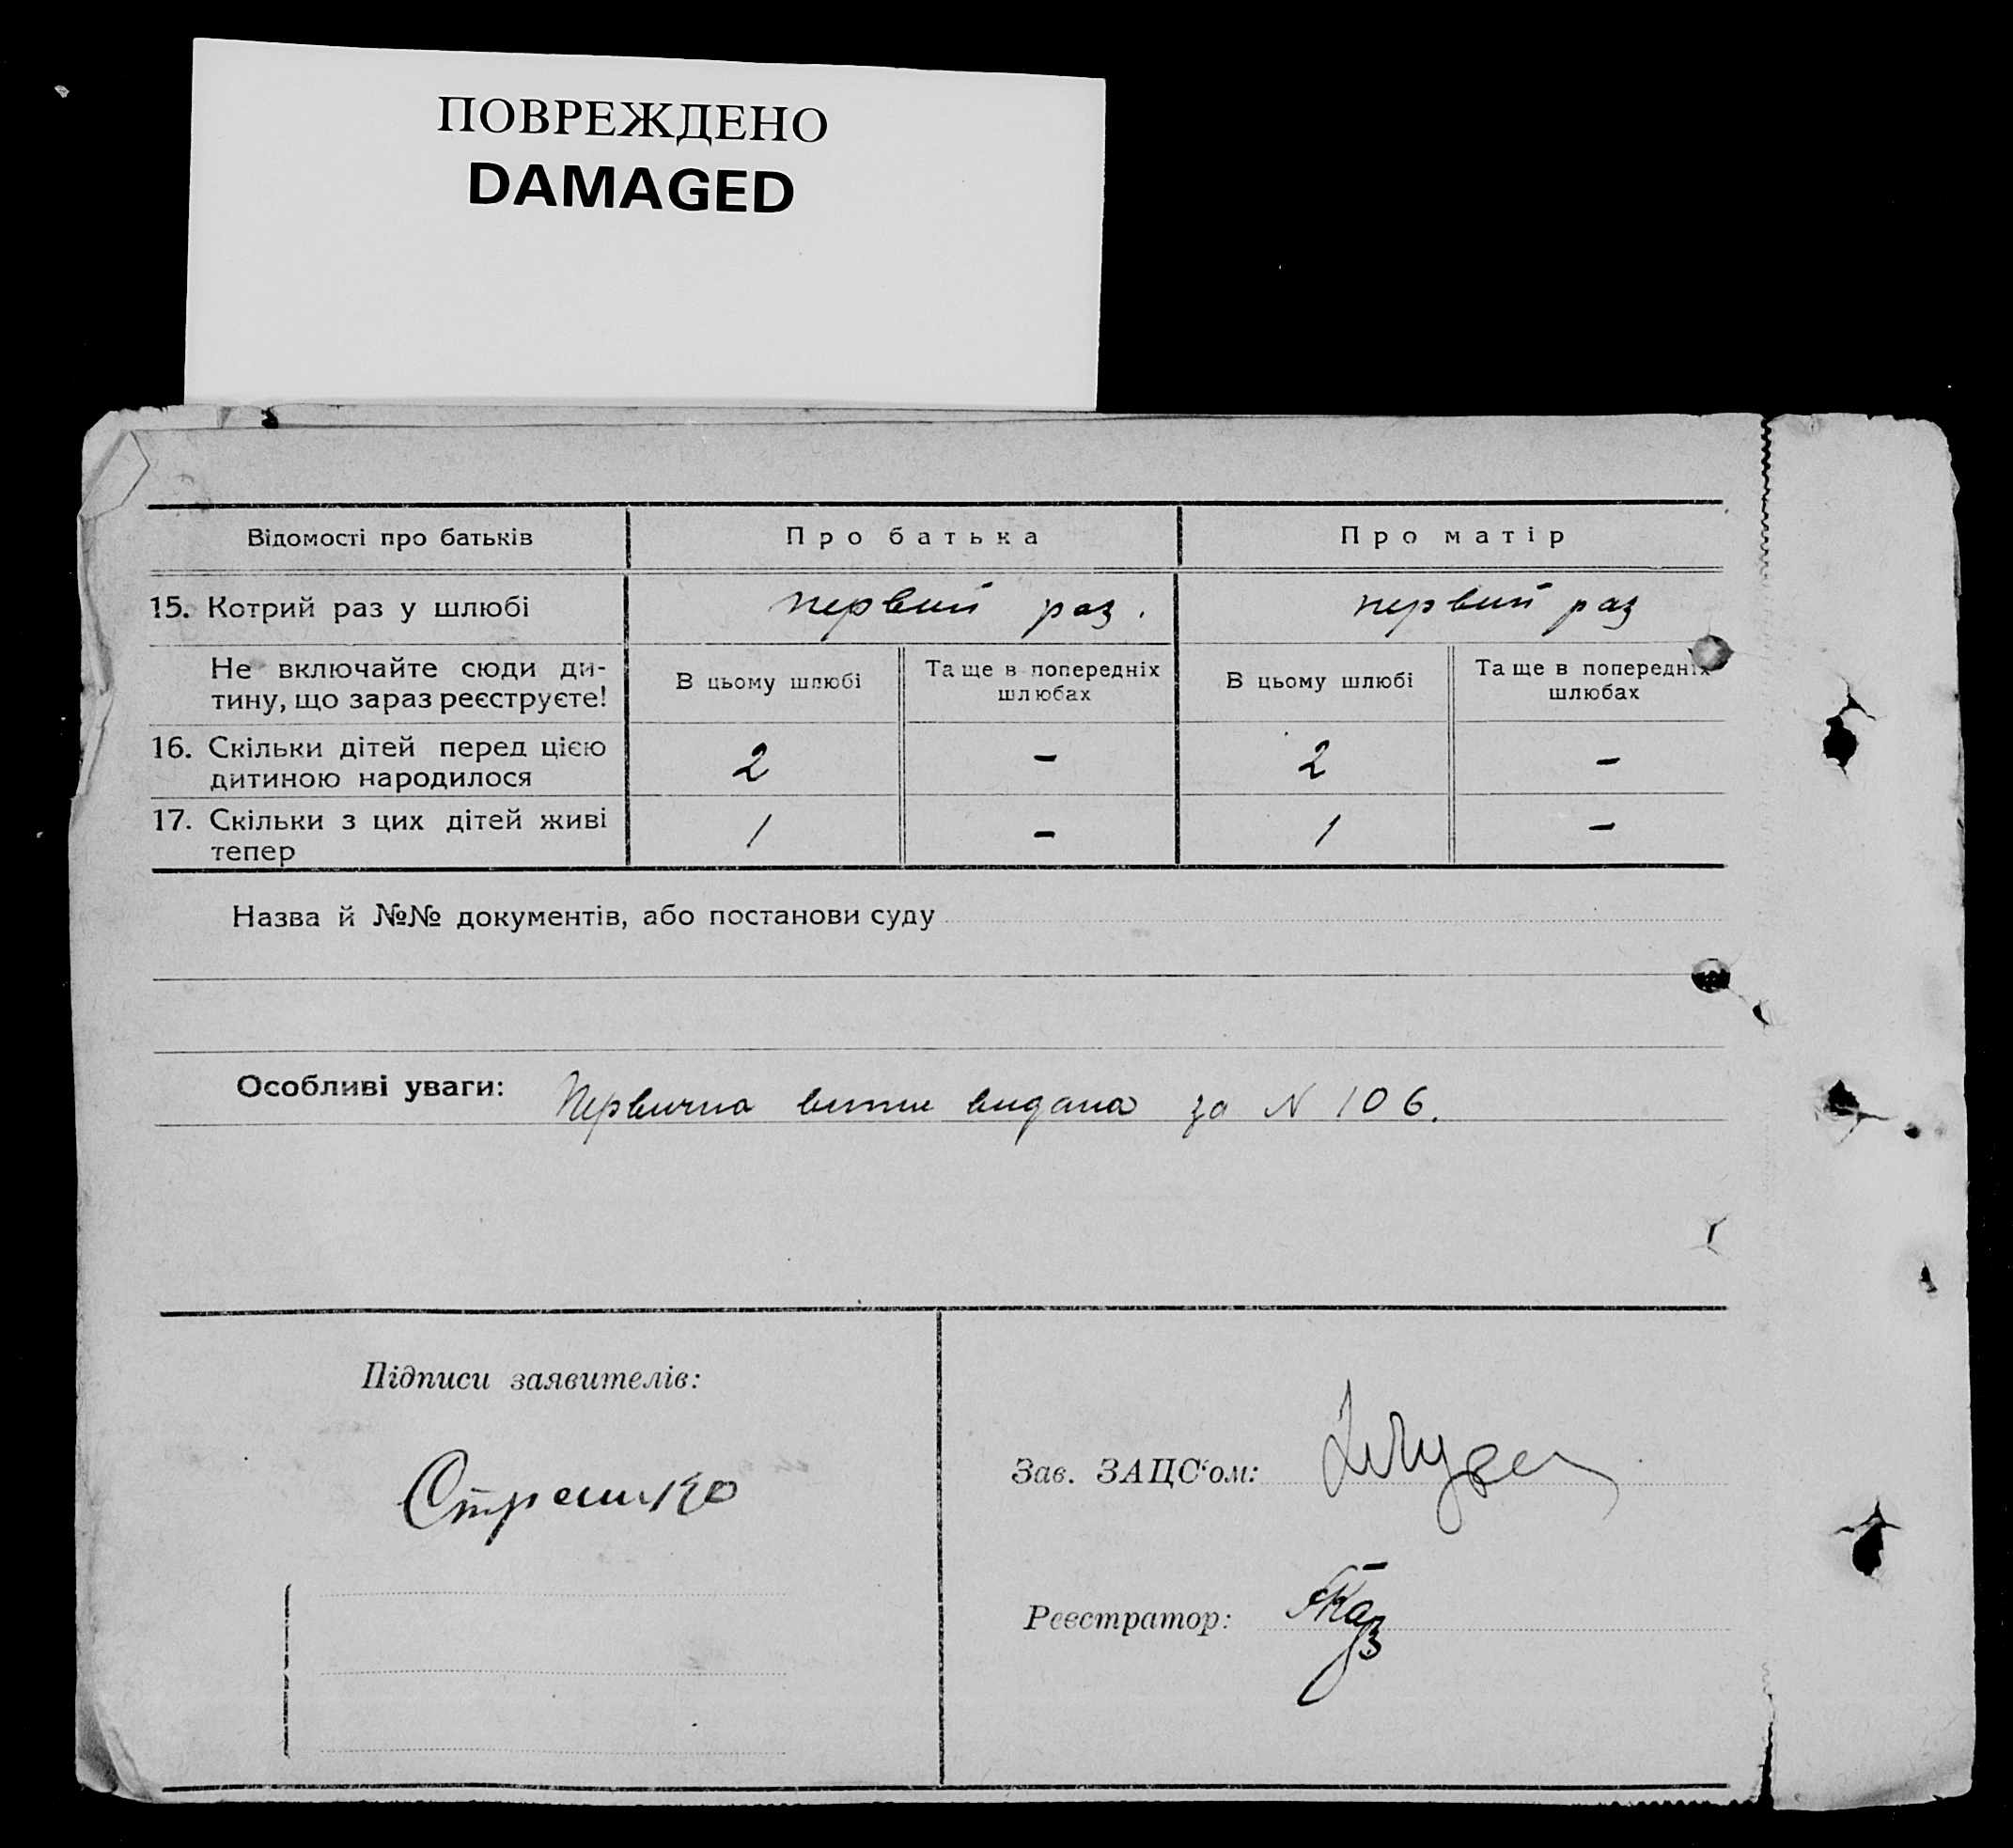 ПОВРЕЖДЕНО
DAMAGED
Відомості про батьків
Про батька
Про матір
15. Котрий раз у шлюбі
первий раз.
первий раз
Не включайте сюди ди-
тину, що зараз реєструєте!
В цьому шлюбі
Та ще в попередніх
шлюбах
В цьому шлюбі
Та ще в попередніх
шлюбах
16. Скільки дітей перед цією
дитиною народилося
2
-
2
-
17. Скільки з цих дітей живі
тепер
1
-
1
-
Назва й №№ документів, або постанови суду
Особливі уваги:
Первична видана за N 106.
Підписи заявителів:
Зав. ЗАЦС‘ом:
Реєстратор: